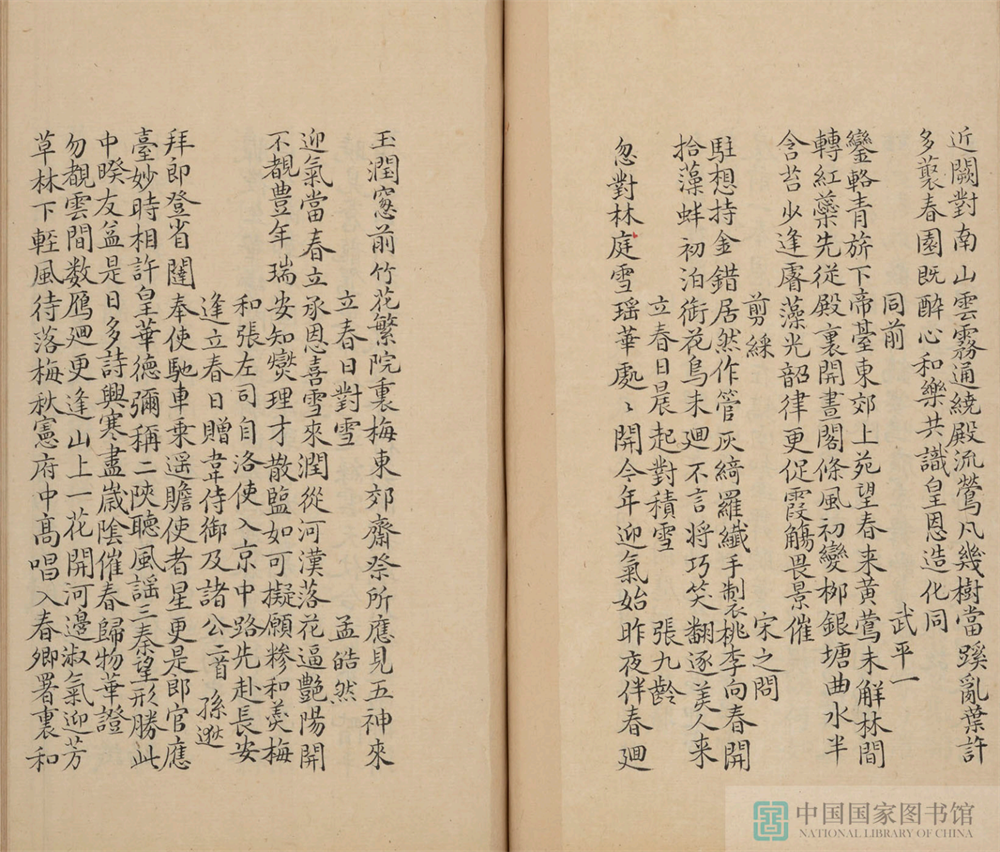 近闕對南山雲霧通繞殿流鶯凡幾樹當蹊亂葉許
多藂春園既醉心和樂共識皇恩造化同
同前 武平一
鑾輅青旂下帝臺東郊上苑望春来黄鶯未解林間
轉紅蘂先従殿裏開畫閣條風初變桞銀塘曲水半
含苔少逢睿藻光韶律更促霞觴畏景催
剪綵 宋之問
駐想持金錯居然作管灰綺羅纖手製桃李向春開
拾藻蚌初泊銜花鳥未廻不言将巧笑翻逐美人来
立春日晨起對積雪 張九齡
忽對林庭雪瑶華處〻開今年迎氣始昨夜伴春廻
玉潤窓前竹花繁院裏梅東郊齋祭所應見五神來
立春日對雪 孟皓然
迎氣當春立承恩喜雪來潤從河漢落花逼艷陽開
不覩豊年瑞安知爕理才散盐如可擬願糝和羮梅
和張左司自洛使入京中路先赴長安
逢立春日贈韋侍御及諸公二首 孫逖
拜郎登省闥奉使馳車乗遥瞻使者星更是郎官應
臺妙時相許皇華德彌稱二陝聴風謡三秦望形勝此
中睽友益是日多詩興寒盡嵗陰催春歸物華證
勿覩雲間数鴈廻更逢山上一花開河邊淑氣迎芳
草林下輊風待落梅秋憲府中髙唱入春卿署裏和
中国国家图书馆
NATIONAL LIBRARY OF CHINA